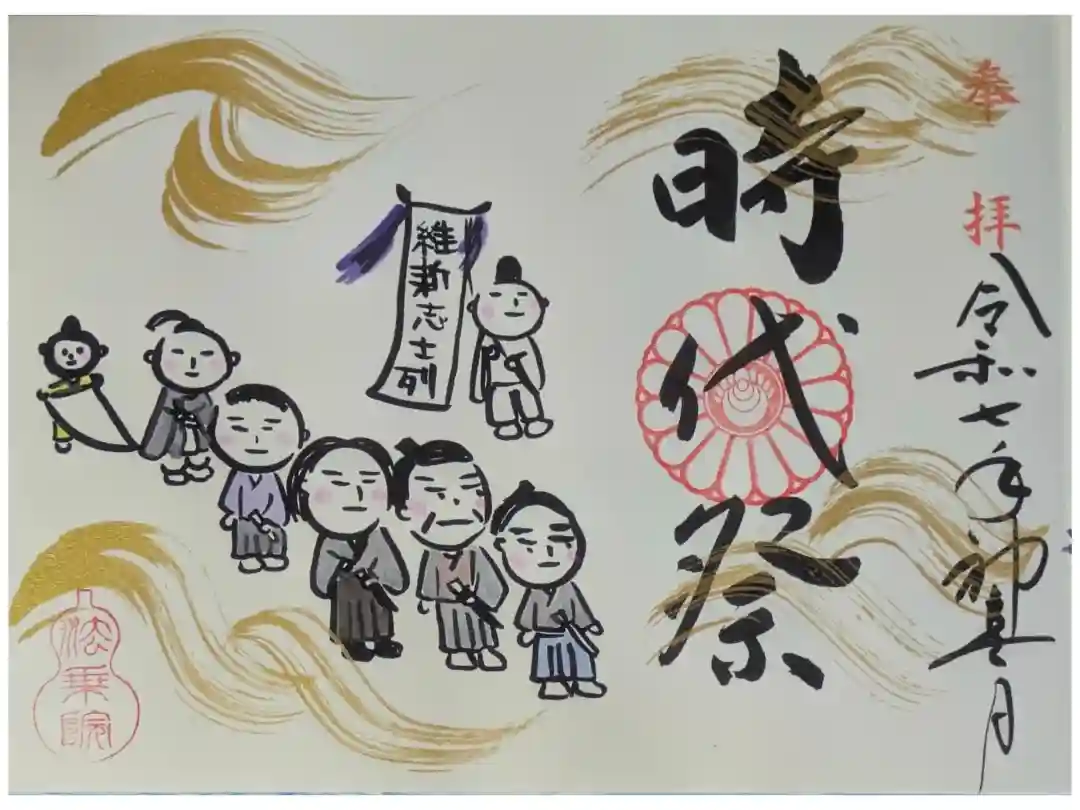 奉拝
令和七年神無月
時代祭
維新志士列
法乗院